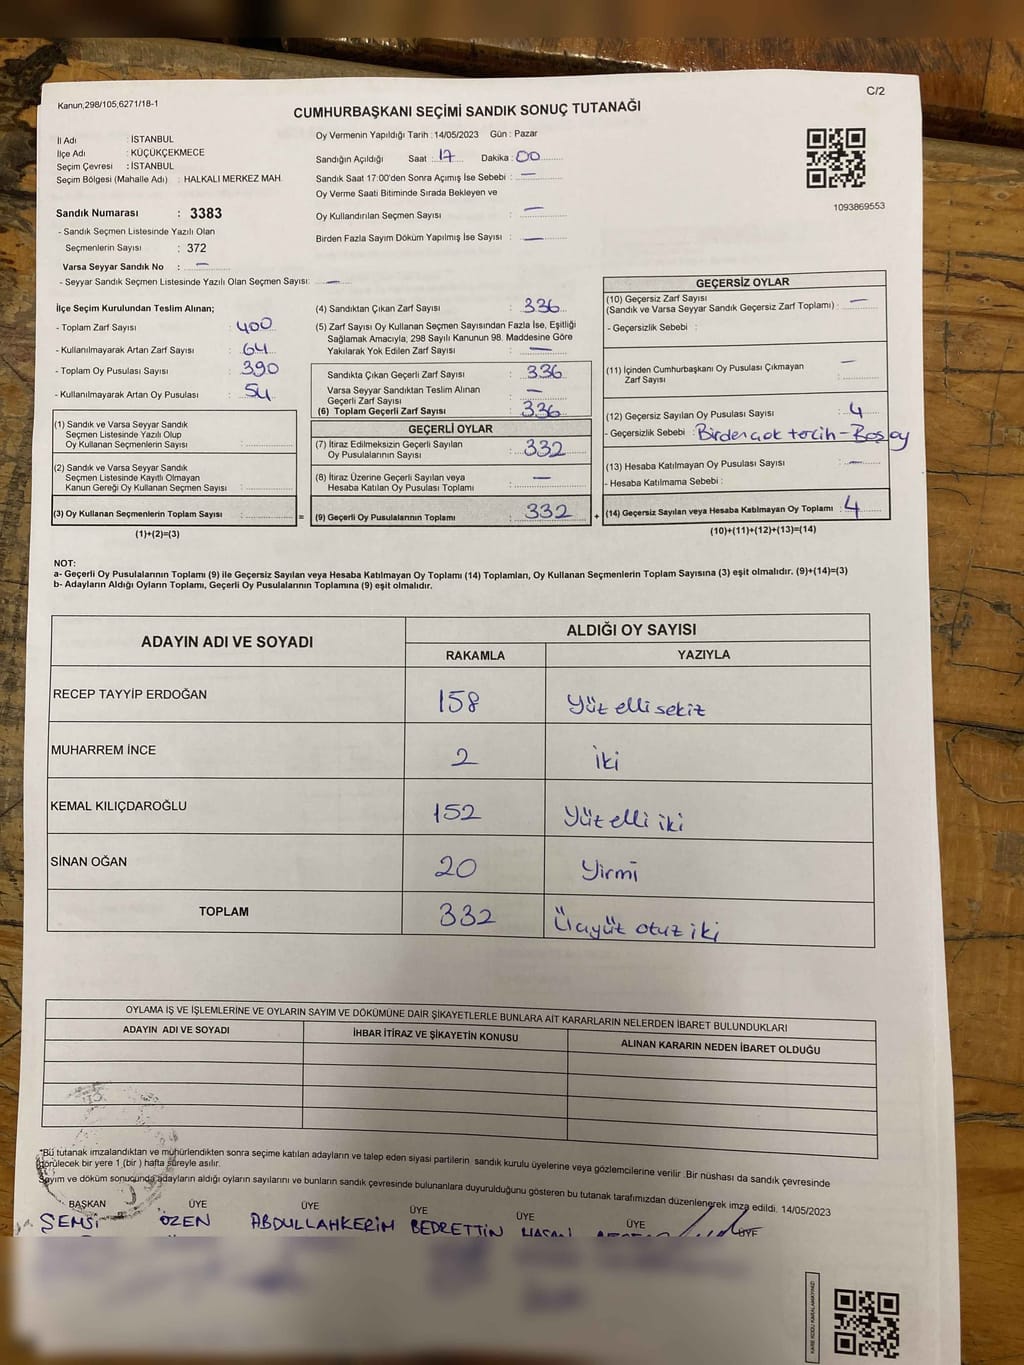 Kanun,298/105;6271/18-1
C/2
CUMHURBAŞKANI SEÇİMİ SANDIK SONUÇ TUTANAĞI
İl Adı : İSTANBUL
İlçe Adı : KÜÇÜKÇEKMECE
Seçim Çevresi : İSTANBUL
Seçim Bölgesi (Mahalle Adı) : HALKALI MERKEZ MAH.
Sandık Numarası : 3383
- Sandık Seçmen Listesinde Yazılı Olan
Seçmenlerin Sayısı : 372
Varsa Seyyar Sandık No : —
- Seyyar Sandık Seçmen Listesinde Yazılı Olan Seçmen Sayısı: —
Oy Vermenin Yapıldığı Tarih : 14/05/2023 Gün : Pazar
Sandığın Açıldığı Saat : 17 Dakika : 00
Sandık Saat 17:00'den Sonra Açımış İse Sebebi : —
Oy Verme Saati Bitiminde Sırada Bekleyen ve
Oy Kullandırılan Seçmen Sayısı : —
Birden Fazla Sayım Döküm Yapılmış İse Sayısı : —
1093869553
İlçe Seçim Kurulundan Teslim Alınan;
- Toplam Zarf Sayısı : 400
- Kullanılmayarak Artan Zarf Sayısı : 64
- Toplam Oy Pusulası Sayısı : 390
- Kullanılmayarak Artan Oy Pusulası : 54
(1) Sandık ve Varsa Seyyar Sandık
Seçmen Listesinde Yazılı Olup
Oy Kullanan Seçmenlerin Sayısı :
(2) Sandık ve Varsa Seyyar Sandık
Seçmen Listesinde Kayıtlı Olmayan
Kanun Gereği Oy Kullanan Seçmen Sayısı :
(3) Oy Kullanan Seçmenlerin Toplam Sayısı :
(1)+(2)=(3)
=
(4) Sandıktan Çıkan Zarf Sayısı : 336
(5) Zarf Sayısı Oy Kullanan Seçmen Sayısından Fazla İse, Eşitliği
Sağlamak Amacıyla; 298 Sayılı Kanunun 98. Maddesine Göre
Yakılarak Yok Edilen Zarf Sayısı : —
Sandıkta Çıkan Geçerli Zarf Sayısı : 336
Varsa Seyyar Sandıktan Teslim Alınan
Geçerli Zarf Sayısı : —
(6) Toplam Geçerli Zarf Sayısı : 336
GEÇERLİ OYLAR
(7) İtiraz Edilmeksizin Geçerli Sayılan
Oy Pusulalarının Sayısı : 332
(8) İtiraz Üzerine Geçerli Sayılan veya
Hesaba Katılan Oy Pusulası Toplamı : —
(9) Geçerli Oy Pusulalarının Toplamı : 332
+
GEÇERSİZ OYLAR
(10) Geçersiz Zarf Sayısı
(Sandık ve Varsa Seyyar Sandık Geçersiz Zarf Toplamı) : —
- Geçersizlik Sebebi :
(11) İçinden Cumhurbaşkanı Oy Pusulası Çıkmayan
Zarf Sayısı : —
(12) Geçersiz Sayılan Oy Pusulası Sayısı : 4
- Geçersizlik Sebebi : Birdençok tercih - Boş oy
(13) Hesaba Katılmayan Oy Pusulası Sayısı : —
- Hesaba Katılmama Sebebi :
(14) Geçersiz Sayılan veya Hesaba Katılmayan Oy Toplamı : 4
(10)+(11)+(12)+(13)=(14)
NOT:
a- Geçerli Oy Pusulalarının Toplamı (9) ile Geçersiz Sayılan veya Hesaba Katılmayan Oy Toplamı (14) Toplamları, Oy Kullanan Seçmenlerin Toplam Sayısına (3) eşit olmalıdır. (9)+(14)=(3)
b- Adayların Aldığı Oyların Toplamı, Geçerli Oy Pusulalarının Toplamına (9) eşit olmalıdır.
ADAYIN ADI VE SOYADI ALDIĞI OY SAYISI
RAKAMLA YAZIYLA
RECEP TAYYİP ERDOĞAN 158 Yüz elli sekiz
MUHARREM İNCE 2 iki
KEMAL KILIÇDAROĞLU 152 Yüz elli iki
SİNAN OĞAN 20 Yirmi
TOPLAM 332 Üçyüz otuz iki
OYLAMA İŞ VE İŞLEMLERİNE VE OYLARIN SAYIM VE DÖKÜMÜNE DAİR ŞİKAYETLERLE BUNLARA AİT KARARLARIN NELERDEN İBARET BULUNDUKLARI
ADAYIN ADI VE SOYADI İHBAR İTİRAZ VE ŞİKAYETİN KONUSU ALINAN KARARIN NEDEN İBARET OLDUĞU
"Bu tutanak imzalandıktan ve mühürlendikten sonra seçime katılan adayların ve talep eden siyasi partilerin sandık kurulu üyelerine veya gözlemcilerine verilir .Bir nüshası da sandık çevresinde
görülecek bir yere 1 (bir ) hafta süreyle asılır.
Sayım ve döküm sonucunda adayların aldığı oyların sayılarını ve bunların sandık çevresinde bulunanlara duyurulduğunu gösteren bu tutanak tarafımızdan düzenlenerek imza edildi. 14/05/2023
BAŞKAN ÜYE ÜYE ÜYE ÜYE ÜYE ÜYE
ŞEMSİ ÖZEN ABDULLAHKERİM BEDRETTİN HASAN